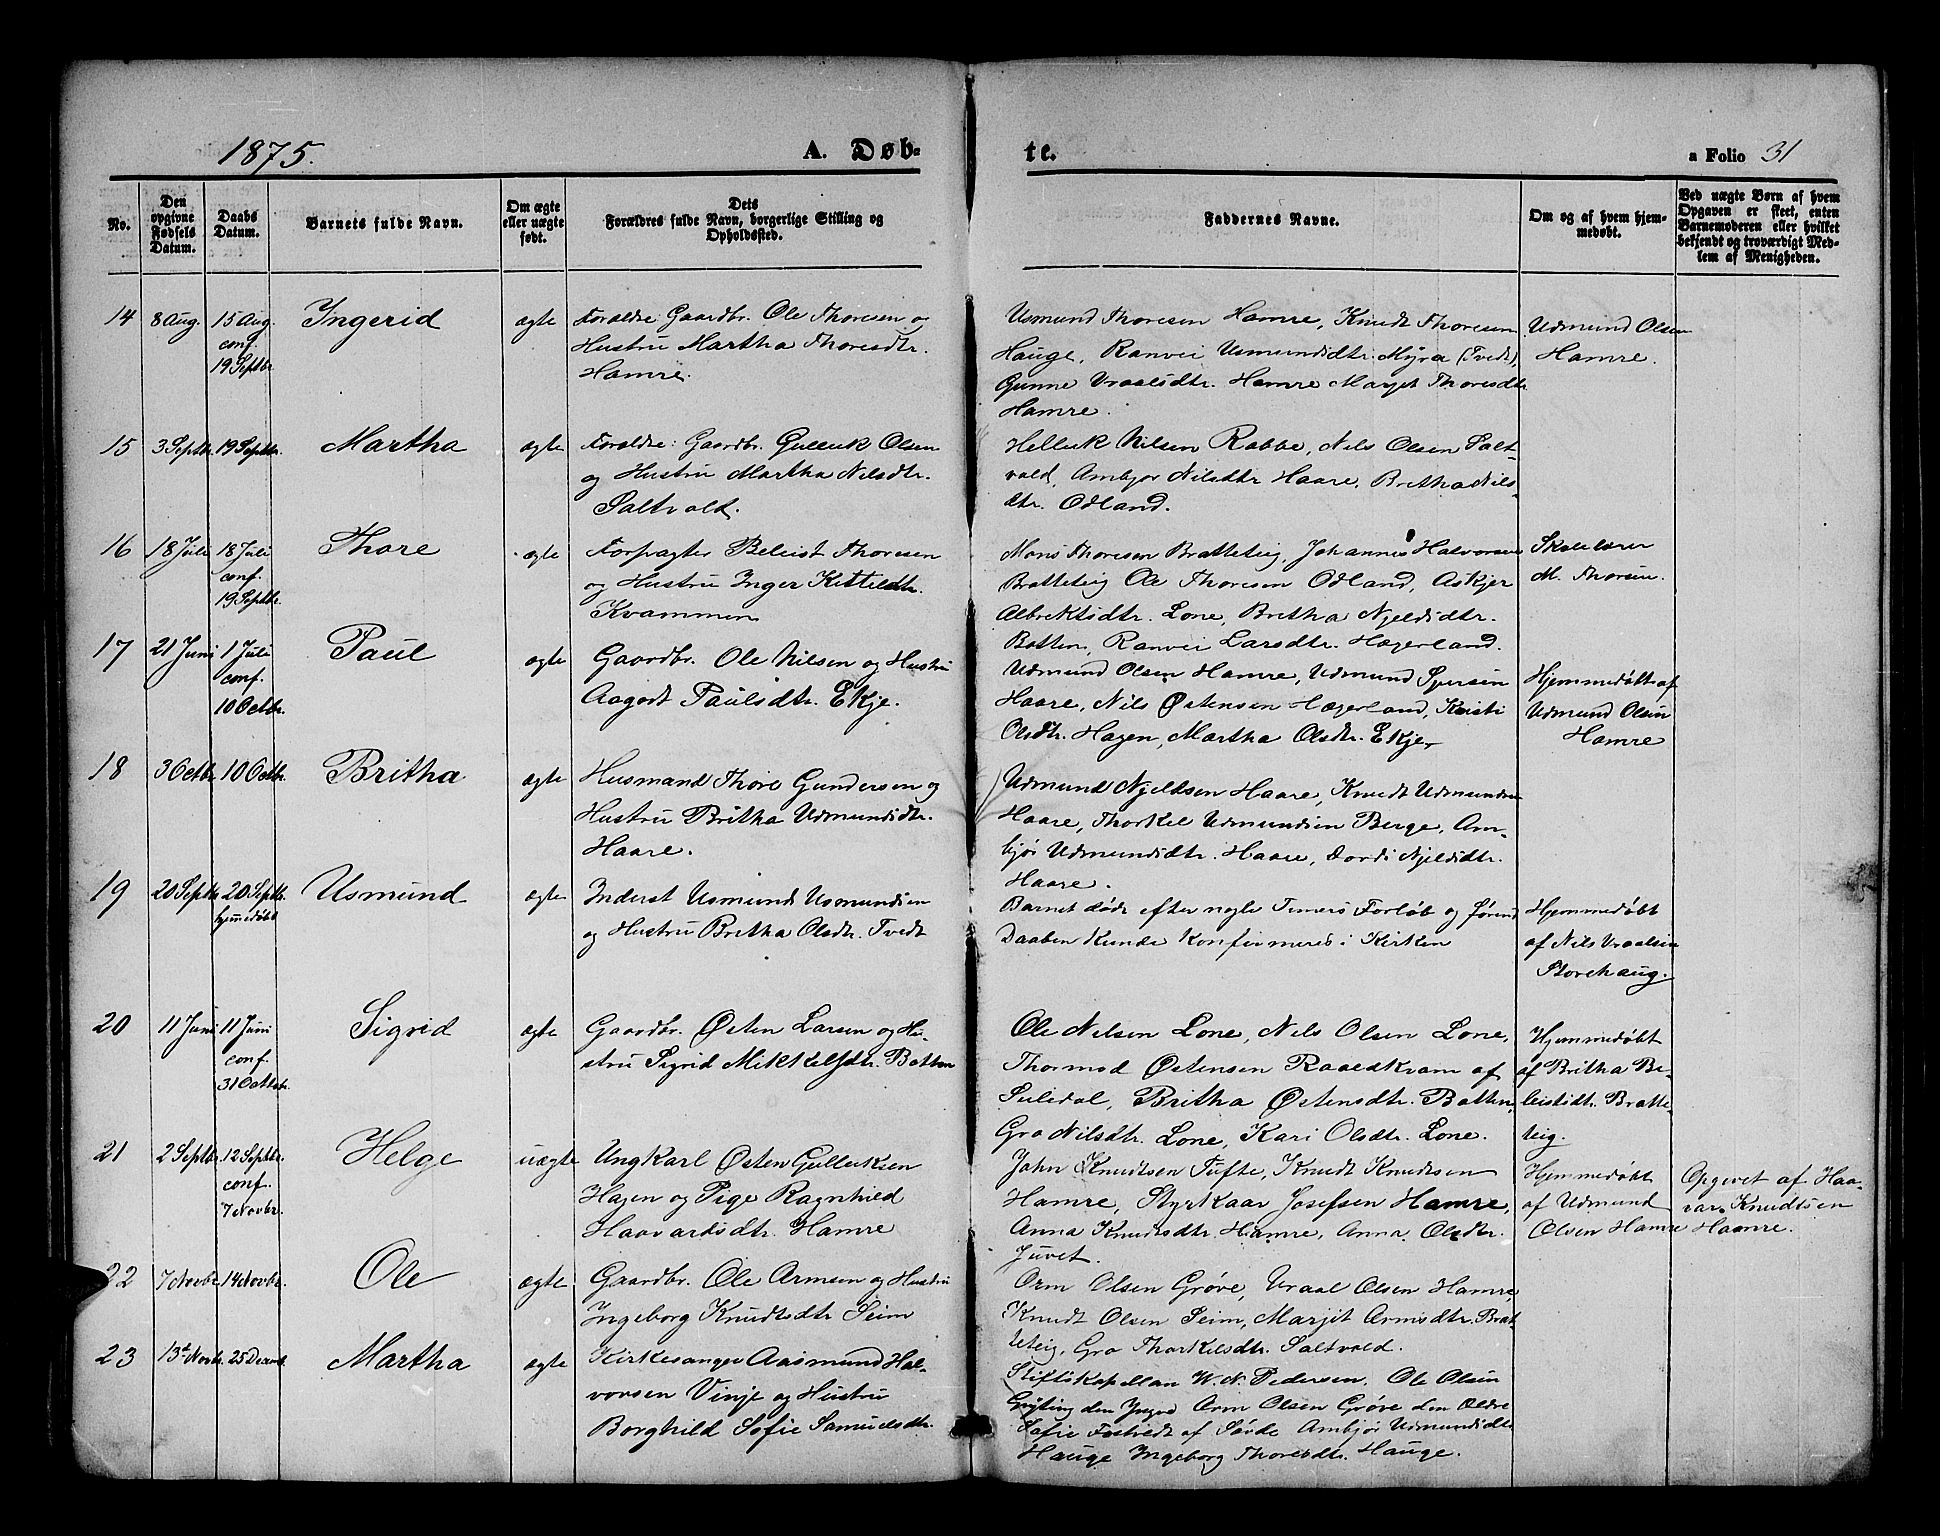 1875.
A. Døb-
te.
a Folio 31
No.
Den opgivne Fødsels Datum.
Daabs Datum.
Barnets fulde Navn.
Om ægte eller uægte født.
Dets Forældres fulde Navn, borgerlige Stilling og Opholdssted.
Faddernes Navne.
Om og af hvem hjemmedøbt.
Ved uægte Børn af hvem Opgaven er skeet, enten Barnemoderen eller hvilket bekjendt og troværdigt Medlem af Menigheden.
14 8 Aug. 15 Aug. conf. 19 Septbr. Ingerid ægte
Forældre: Gaardbr. Ole Thoresen og
Hustru Martha Thoresdtr.
Hamre.
Usmund Thoresen Hamre, Knudt Thoresen
Hauge, Ranvei Usmundsdtr. Myra (Tvedt),
Gunne Vraalsdtr. Hamre Margit Thoresdtr
Hamre.
Udmund Olsen
Hamre.
15 3 Septbr. 19 Septbr. Martha ægte
Forældre: Gaardbr. Gulleik Olsen
og Hustru Martha Nilsdtr.
Saltvold.
Helleik Nilsen Rabbe, Nils Olsen Salt-
vold, Ambjør Nilsdtr Haare, Britha Nils-
dtr. Odland.
16 18 Juli 18 Juli conf. 19 Septbr. Thore ægte
Forpagter Beleist Thoresen
og Hustru Inger Kittilsdtr.
Kvammen
Mons Thoresen Bratteteig, Johannes Halvorsen
Batteteig Ole Thoresen Odland, Askjer
Albrektsdtr. Lone, Britha Njeldsdtr.
Botten, Ranvei Larsdtr. Hægerland.
Skolelærer
M. Thorsen.
17 21 Juni 1 Juli conf. 10 Octbr. Paul ægte
Gaardbr. Ole Nilsen og Hustru
Aagodt Paulsdtr. Ekje.
Udmund Olsen Hamre, Udmund Sjursen
Haare, Nils Østensen Hægerland, Kristi
Olsdtr. Hagen, Martha Olsdtr. Ekje
Hjemmedøbt af
Udmund Olsen
Hamre
18 3 Octbr. 10 Octbr. Britha ægte
Husmand Thore Gundersen og
Hustru Britha Udmundsdtr.
Haare.
Udmund Njeldsen Haare, Knudt Udmundsen
Haare, Thorkel Udmundsen Berge, Am-
bjør Udmundsdtr. Haare, Dordi Njeldsdtr.
Haare.
19 20 Septbr. 20 Septbr. hjemmedøbt Usmund ægte
Inderst Usmund Usmundsen
og Hustru Britha Olsdtr. Tvedt
Barnet døde efter nogle Timers Forløb og førend
Daaben kunde konfirmeres i Kirken
Hjemmedøbt
af Nils Vraalsen
Storehaug.
20 11 Juni 11 Juni conf. 31 Octbr. Sigrid ægte
Gaardbr. Østen Larsen og Hu-
stru Sigrid Mikkelsdtr. Botten
Ole Nilsen Lone, Nils Olsen Lone,
Thormod Østensen Raaedkvam af
Suledal, Britha Østensdtr. Botten,
Gro Nilsdtr. Lone, Kari Olsdtr. Lone.
Hjemmedøbt
af Britha Be-
leistsdtr. Bratte-
teig.
21 2 Septbr. 12 Septbr. conf. 7 Novbr. Helge uægte
Ungkarl Østen Gulleiksen
Hagen og Pige Ragnhild
Haavardsdtr. Hamre
John Knudtsen Tufte, Knudt Knudtsen
Hamre, Styrkaar Josefsen Hamre,
Anna Knudtsdtr. Hamre, Anna Olsdtr.
Juvet.
Hjemmedøbt
af Udmund
Olsen Hamre
Opgevet af Haa-
var Knudtsen
Hamre.
22 7 Novbr. 14 Novbr. Ole ægte
Gaardbr. Ole Armsen og Hustru
Ingeborg Knudtsdtr Seim
Orm Olsen Grøve, Vraal Olsen Hamre,
Knudt Olsen Seim, Marjit Armsdtr. Brat-
teteig, Gro Thorkelsdtr. Saltvold.
23 13de Novbr. 25 Decemb. Martha ægte
Kirkesanger Aasmund Hal-
vorsen Vinje og Hustru
Borghild Sofie Samuelsdtr.
Stiftskapellan W. N. Pedersen, Ole Olsen
Grytting den Yngre Arm Olsen Grøve den Ældre
Sofie Fostvedt af Søvde Ambjør Udmundsdtr
Hauge Ingeborg Thoresdtr. Hauge.